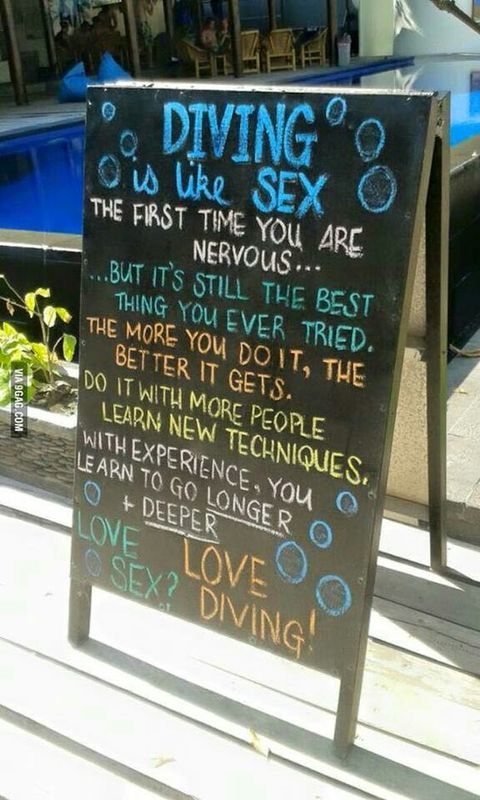 DIVING
is like SEX
THE FIRST TIME YOU ARE
NERVOUS...
...BUT IT'S STILL THE BEST
THING YOU EVER TRIED.
THE MORE YOU DO IT, THE
BETTER IT GETS.
DO IT WITH MORE PEOPLE
LEARN NEW TECHNIQUES.
WITH EXPERIENCE, YOU
LEARN TO GO LONGER
+ DEEPER
LOVE
SEX?
LOVE
DIVING!
VIA 9GAG.COM